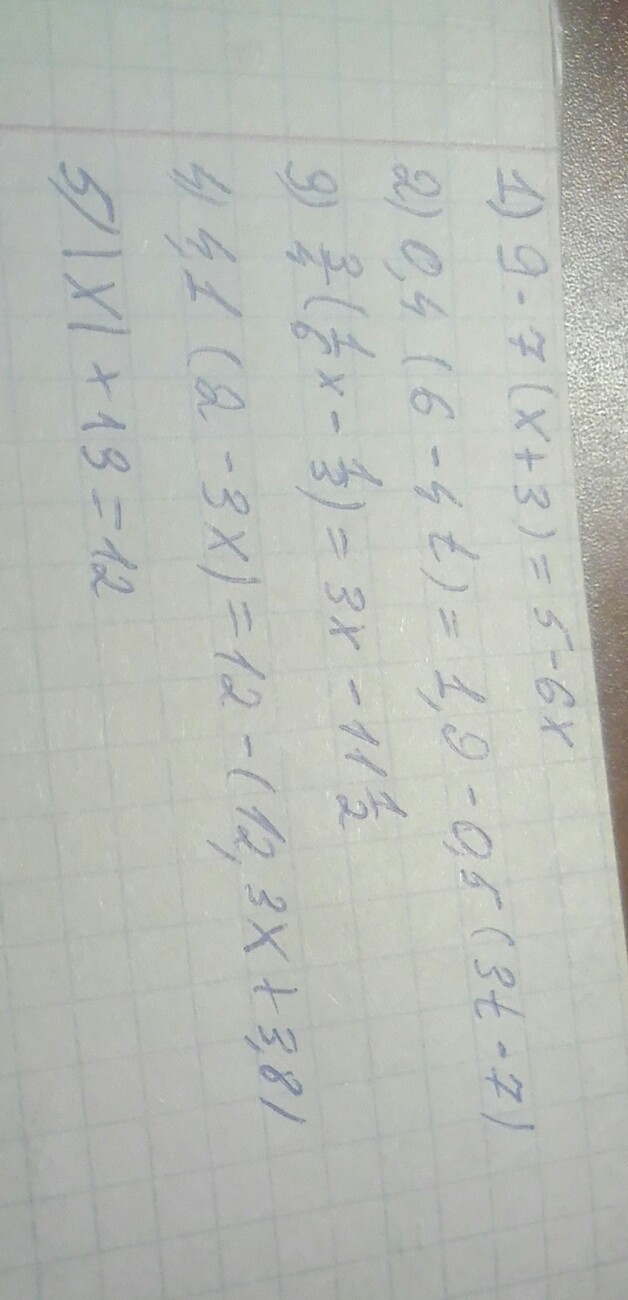 1) 9 - 7(x+3) = 5 - 6x
2) 0,4 (6 - 4t) = 1,9 - 0,5 (3t - 7)
3) 3/4 (1/6 x - 1/3) = 3x - 11 1/2
4) 4,1 (2 - 3x) = 12 - (12,3x + 3,8)
5) |x| + 19 = 12